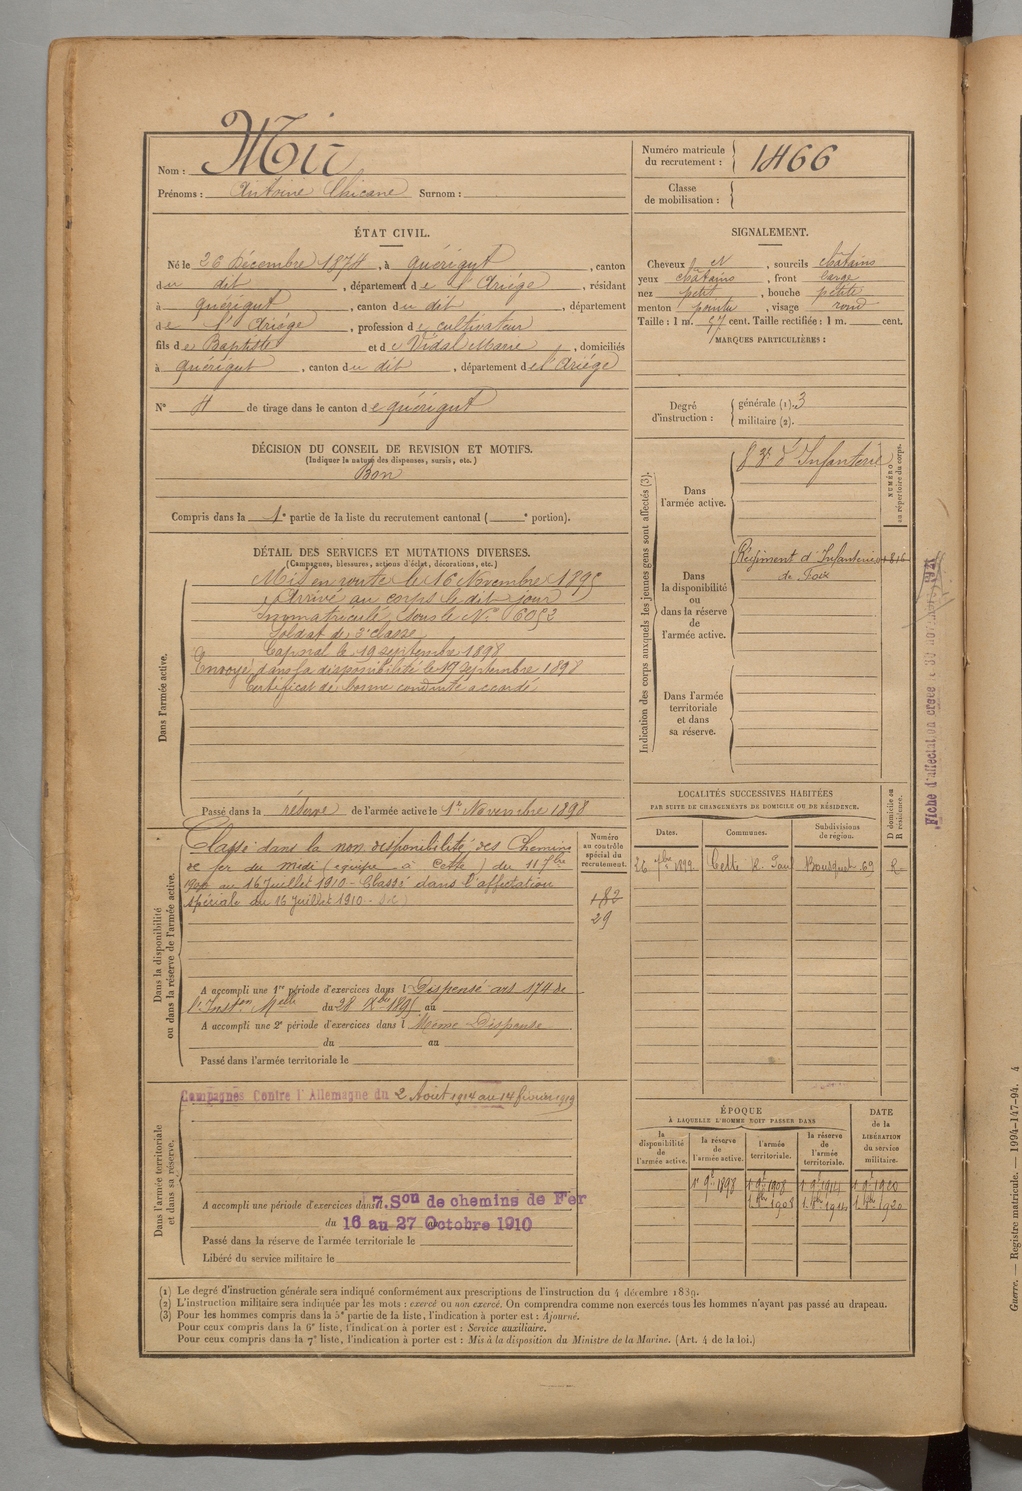 Nom : Mir
Prénoms : Antoine Surnom :
Numéro matricule du recrutement : 1466
Classe de mobilisation :
ÉTAT CIVIL.
Né le 26 Décembre 1874, à Quérigut, canton
du dit, département de l'Ariège, résidant
à Quérigut, canton du dit, département
de l'Ariège, profession de cultivateur
fils de Baptiste et de Vidal Marie, domiciliés
à Quérigut, canton du dit, département de l'Ariége
N° 4 de tirage dans le canton de Quérigut
SIGNALEMENT.
Cheveux N, sourcils châtains
yeux châtains, front large
nez petit, bouche petite
menton pointu, visage rond
Taille : 1 m. 57 cent. Taille rectifiée : 1 m. cent.
MARQUES PARTICULIÈRES :
Degré d'instruction : générale (1). 3
militaire (2).
DÉCISION DU CONSEIL DE REVISION ET MOTIFS.
(Indiquer la nature des dispenses, sursis, etc.)
Bon
Compris dans la 1e partie de la liste du recrutement cantonal ( e portion).
DÉTAIL DES SERVICES ET MUTATIONS DIVERSES.
(Campagnes, blessures, actions d'éclat, décorations, etc.)
Dans l'armée active.
Mis en route le 16 Novembre 1895
Arrivé au corps le dit jour
Immatriculé sous le N° 6052
Soldat de 2e classe
Caporal le 19 septembre 1898
Envoyé dans la disponibilité le 19 septembre 1898
Certificat de bonne conduite accordé
Passé dans la réserve de l'armée active le 1er Novembre 1898
Indication des corps auxquels les jeunes gens sont affectés (3).
Dans l'armée active.
d'Infanterie
NUMÉRO au répertoire du corps.
Dans la disponibilité ou dans la réserve de l'armée active.
Régiment d'Infanterie 1816
de Foix
Dans l'armée territoriale et dans sa réserve.
Fiche d'affectation créée
LOCALITÉS SUCCESSIVES HABITÉES
PAR SUITE DE CHANGEMENTS DE DOMICILE OU DE RÉSIDENCE.
Dates. Communes. Subdivisions de région. D domicile ou R résidence.
26 Cette R. Bousquet 69 R
Dans la disponibilité ou dans la réserve de l'armée active.
Numéro au contrôle spécial du recrutement.
Classé dans la non disponibilité des Chemins
de fer du Midi (équipe à Cette) du 11 7bre
au 16 Juillet 1910 - Classé dans l'affectation
spéciale du 16 Juillet 1910
182
29
A accompli une 1re période d'exercices dans l Dispensé art 174 de
l'Inston Melle du 28 Xbre 1895 au
A accompli une 2e période d'exercices dans l Même Dispense
du au
Passé dans l'armée territoriale le
Dans l'armée territoriale et dans sa réserve.
Campagnes Contre l'Allemagne du 2 Août 1914 au 14 février 1919
A accompli une période d'exercices dans 7. Son de chemins de Fer
du 16 au 27 Octobre 1910
Passé dans la réserve de l'armée territoriale le
Libéré du service militaire le
ÉPOQUE
À LAQUELLE L'HOMME DOIT PASSER DANS
DATE de la LIBÉRATION du service militaire.
la disponibilité de l'armée active. la réserve de l'armée active. l'armée territoriale. la réserve de l'armée territoriale.
1 9bre 1898 1 9bre 1908 1 9bre 1914 1 9bre 1920
1908 1914 1920
(1) Le degré d'instruction générale sera indiqué conformément aux prescriptions de l'instruction du 4 décembre 1839.
(2) L'instruction militaire sera indiquée par les mots : exercé ou non exercé. On comprendra comme non exercés tous les hommes n'ayant pas passé au drapeau.
(3) Pour les hommes compris dans la 5e partie de la liste, l'indication à porter est : Ajourné.
Pour ceux compris dans la 6e liste, l'indication à porter est : Service auxiliaire.
Pour ceux compris dans la 7e liste, l'indication à porter est : Mis à la disposition du Ministre de la Marine. (Art. 4 de la loi.)
Guerre. — Registre matricule. — 1994-147-94. 4